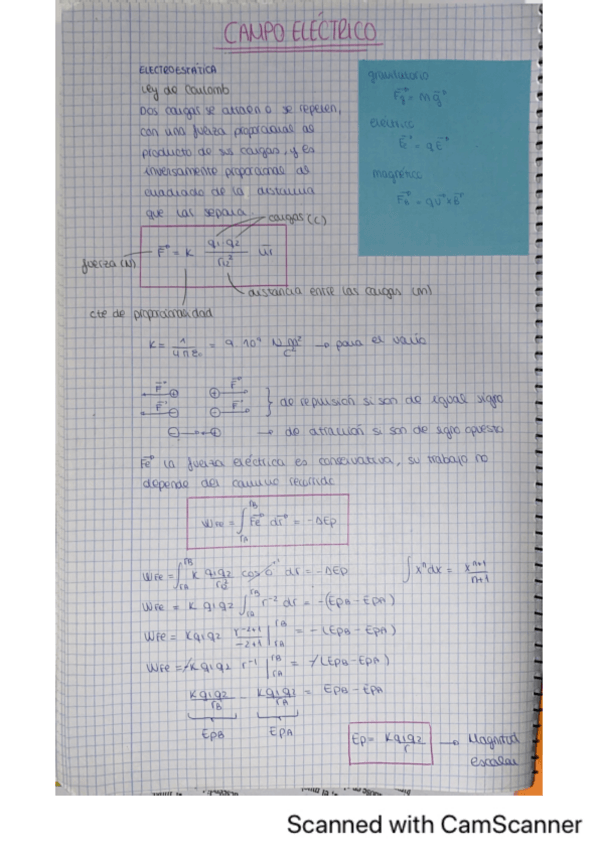 CAMPO ELÉCTRICO
ELECTROESTÁTICA
Ley de Coulomb
Dos cargas se atraen o se repelen,
con una fuerza proporcional al
producto de sus cargas, y es
inversamente proporcional al
cuadrado de la distancia
que las separa
gravitatorio
F⃗g = m g⃗
eléctrico
F⃗e = q E⃗
magnético
F⃗B = q v⃗ × B⃗
cargas (C)
fuerza (N)
F⃗ = K q1 q2 / r12² u⃗r
distancia entre las cargas (m)
cte de proporcionalidad
K = 1 / 4πε₀ = 9·10⁹ N m² / C² → para el vacío
F⃗ + + F⃗
F⃗ - - F⃗
} de repulsión si son de igual signo
- + → de atracción si son de signo opuesto
F⃗e la fuerza eléctrica es conservativa, su trabajo no
depende del camino recorrido
WFe = ∫rA rB F⃗e dr⃗ = -ΔEp
WFe = ∫rA rB K q1 q2 / r² cos 0 1 dr = -ΔEp
∫ xⁿ dx = xⁿ⁺¹ / n+1
WFe = K q1 q2 ∫rA rB r⁻² dr = -(EpB - EpA)
WFe = K q1 q2 r⁻²⁺¹ / -2+1 |rA rB = -(EpB - EpA)
WFe = -K q1 q2 r⁻¹ |rA rB = -(EpB - EpA)
K q1 q2 / rB - K q1 q2 / rA = EpB - EpA
EpB EpA
Ep = K q1 q2 / r → Magnitud
escalar
Scanned with CamScanner